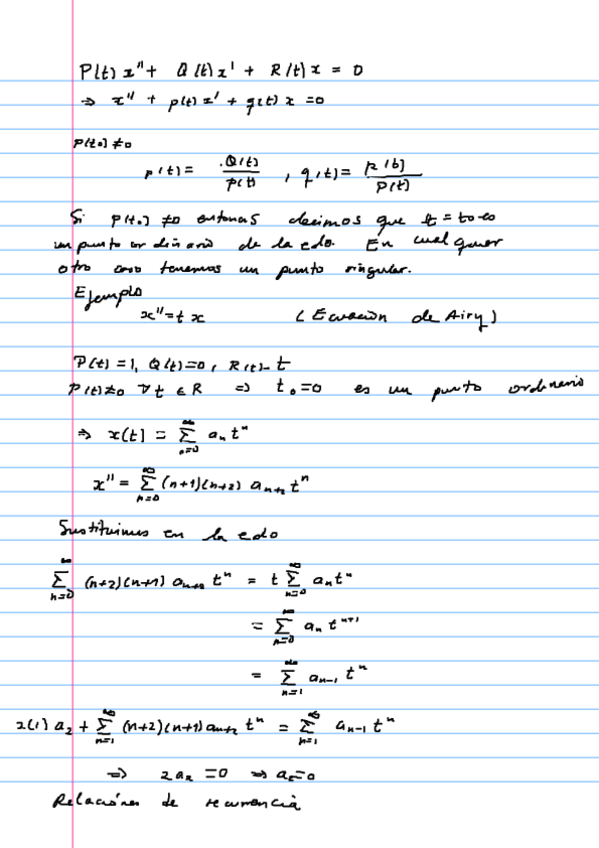 P(t) x'' + Q(t) x' + R(t) x = 0
⇒ x'' + p(t) x' + q(t) x = 0
P(t₀) ≠ 0
p(t) = Q(t)/P(t) , q(t) = R(t)/P(t)
Si P(t₀) ≠ 0 entonces decimos que t = t₀ es
un punto ordinario de la edo. En cualquier
otro caso tenemos un punto singular.
Ejemplo
x'' = t x (Ecuación de Airy)
P(t) = 1, Q(t) = 0, R(t) = t
P(t) ≠ 0 ∀ t ∈ R ⇒ t₀ = 0 es un punto ordinario
⇒ x(t) = ∑_{n=0}^{∞} aₙ tⁿ
x'' = ∑_{n=0}^{∞} (n+1)(n+2) aₙ₊₂ tⁿ
Sustituimos en la edo
∑_{n=0}^{∞} (n+2)(n+1) aₙ₊₂ tⁿ = t ∑_{n=0}^{∞} aₙ tⁿ
= ∑_{n=0}^{∞} aₙ tⁿ⁺¹
= ∑_{n=1}^{∞} aₙ₋₁ tⁿ
2(1) a₂ + ∑_{n=1}^{∞} (n+2)(n+1) aₙ₊₂ tⁿ = ∑_{n=1}^{∞} aₙ₋₁ tⁿ
⇒ 2a₂ = 0 ⇒ a₂ = 0
Relaciones de recurrencia